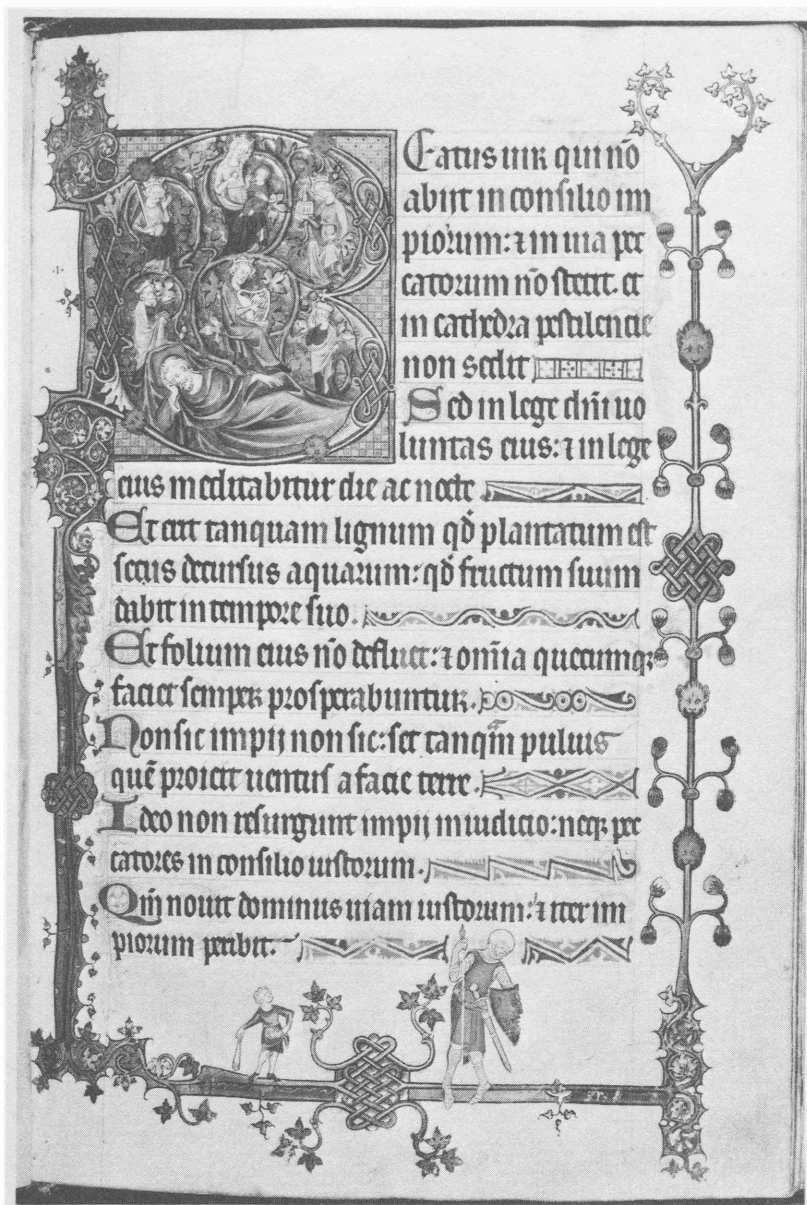 Eatus uir qui nō
abijt in consilio im
piorum: ⁊ in uia pec
catorum nō stetit. et
in cathedra pestilencie
non sedit
Sed in lege dn̄i uo
luntas eius: ⁊ in lege
eius meditabitur die ac nocte
Et erit tanquam lignum qd̄ plantatum est
secus decursus aquarum: qd̄ fructum suum
dabit in tempore suo.
Et folium eius nō defluet: ⁊ om̄ia quecumqꝫ
faciet semper prosperabuntur.
Non sic impij non sic: set tanqᵃm puluis
quē proicit uentus a facie terre.
Ideo non resurgunt impij in iudicio: neqꝫ pec
catores in consilio iustorum.
Qm̄ nouit dominus uiam iustorum: ⁊ iter im
piorum peribit.